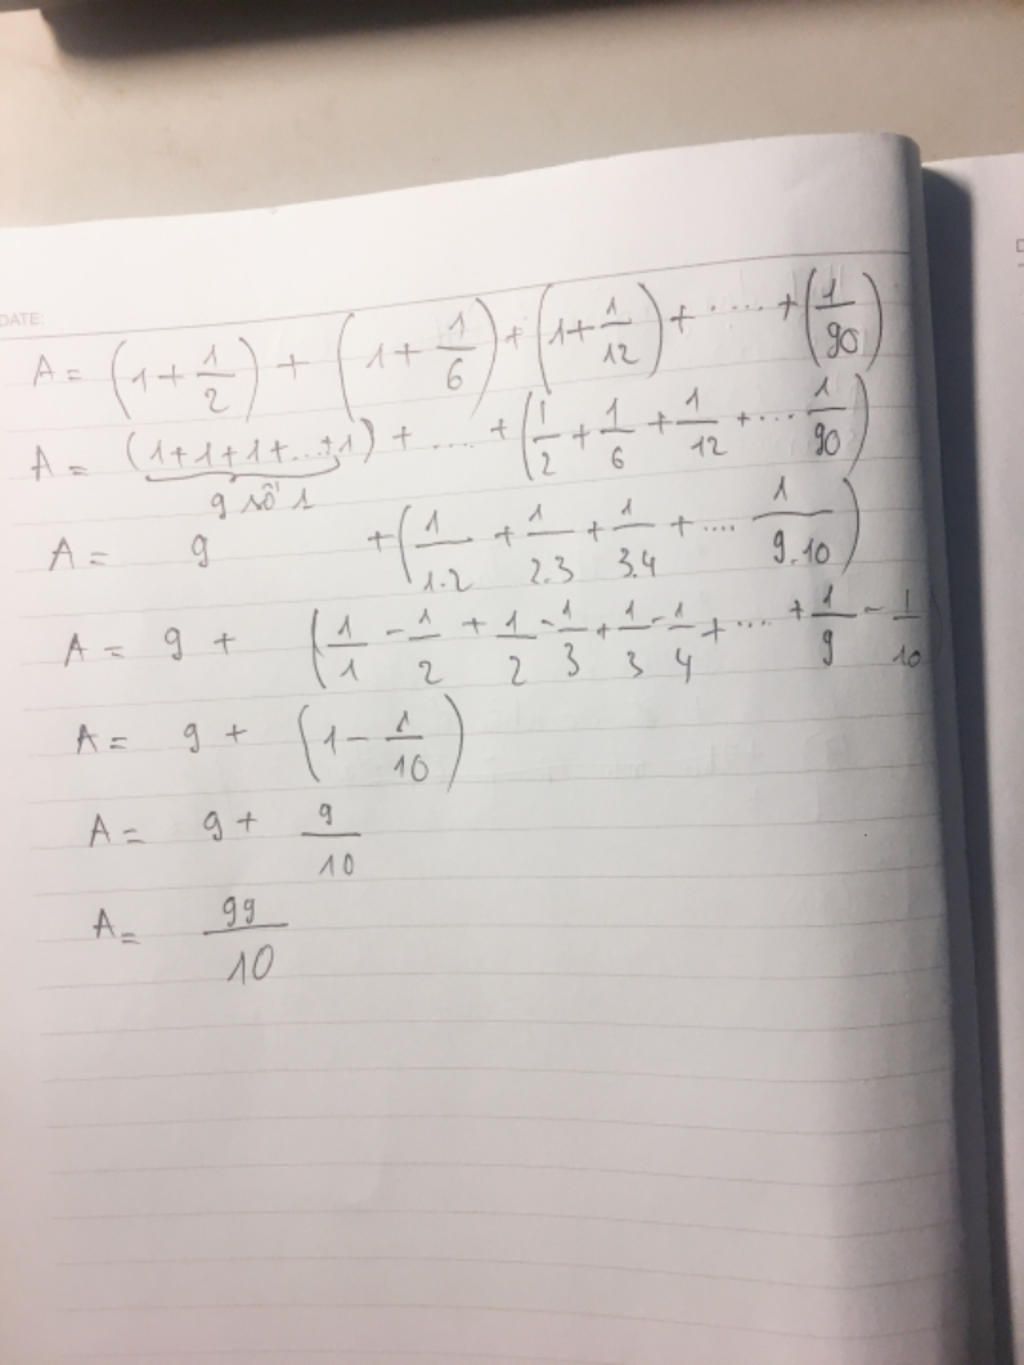 DATE:
A = (1 + 1/2) + (1 + 1/6) + (1 + 1/12) + ..... + (1/90)
A = (1+1+1+...+1) + .... + (1/2 + 1/6 + 1/12 + ... 1/90)
9 số 1
A = 9 + (1/1.2 + 1/2.3 + 1/3.4 + .... 1/9.10)
A = 9 + (1/1 - 1/2 + 1/2 - 1/3 + 1/3 - 1/4 + .... + 1/9 - 1/10)
A = 9 + (1 - 1/10)
A = 9 + 9/10
A = 99/10